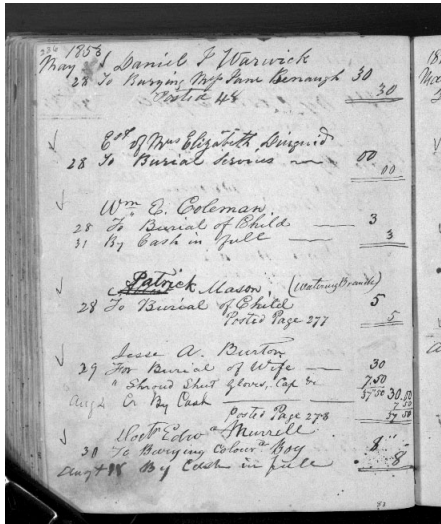 236
1853
May Daniel J Warwick
28 To Burying Mrs Jane Benaugh 30
Posted 48 30
Est of Mrs Elizabeth Diuguid
28 To Burial Services 00
00
Wm E. Coleman
28 To Burial of Child 3
31 By Cash in full 3
Patrick Mason, (Watering Branch)
28 To Burial of Child 5
Posted Page 277 5
Jesse A. Burton
29 For Burial of Wife 30
" Shroud Sheet Gloves, Cap &c 7.50
Aug 2 Cr By Cash 37 50 30.00
7 50
Posted Page 278 37 50
Doctr Edwd Murrell
30 To Burying Colour'd Boy 8
Aug 18 By Cash in full 8